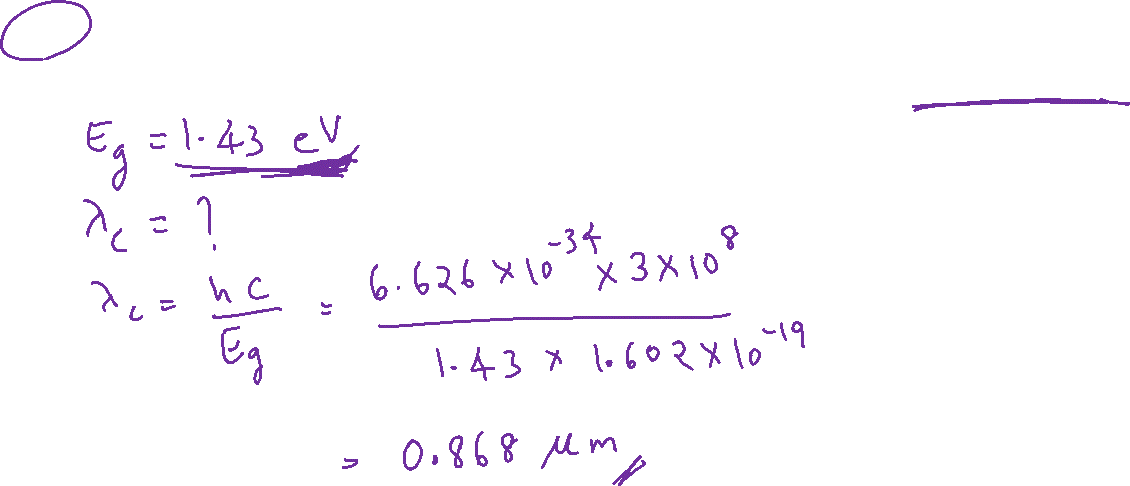 Eg = 1.43 eV
λc = ?
λc = hc / Eg = 6.626 × 10⁻³⁴ × 3 × 10⁸ / 1.43 × 1.602 × 10⁻¹⁹
= 0.868 μm